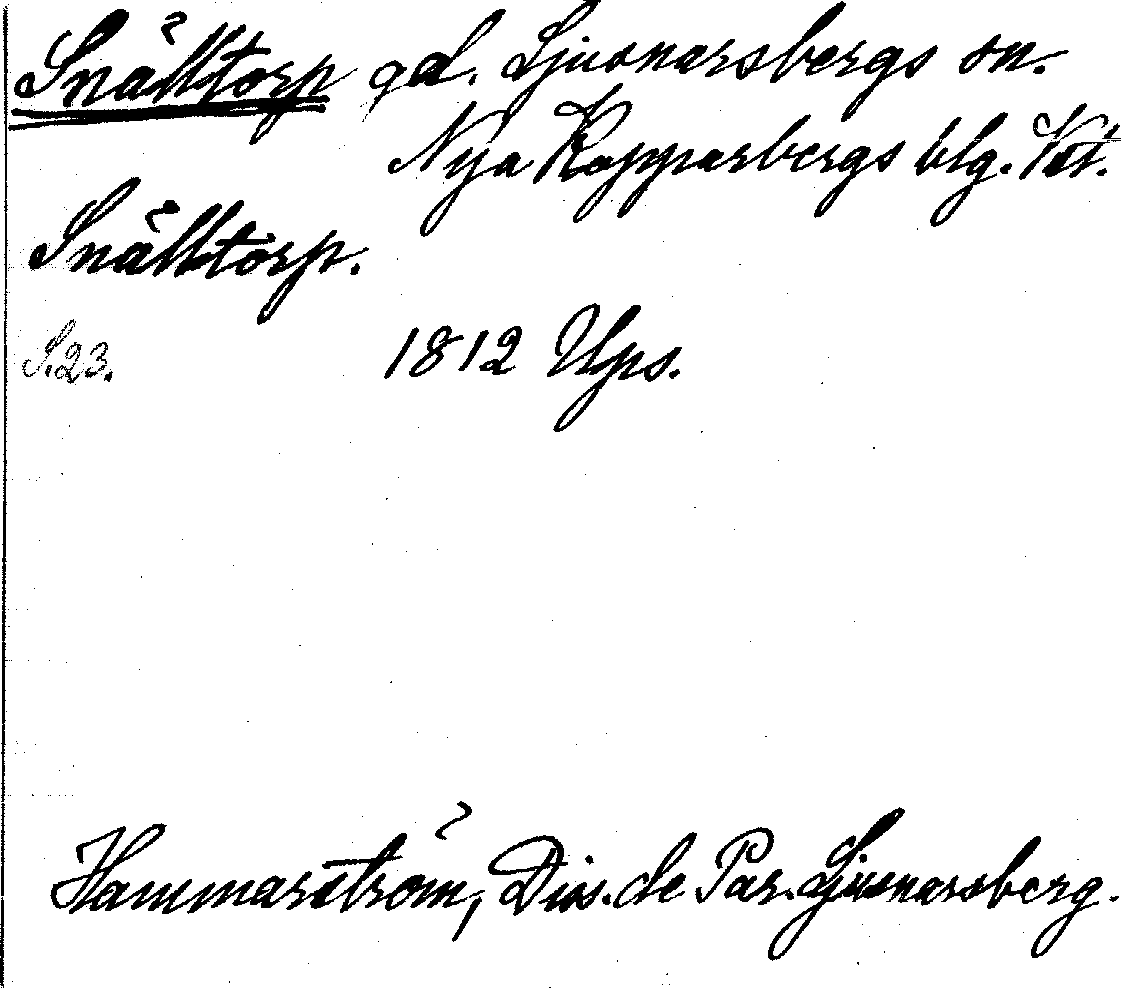 Snälltorp gd. Ljusnarsbergs sn.
Nya Kopparbergs blg. Vst.
Snälltorp.
S.23. 1812 Ups.
Hammarström, Diss. de Par. Ljusnarsberg.